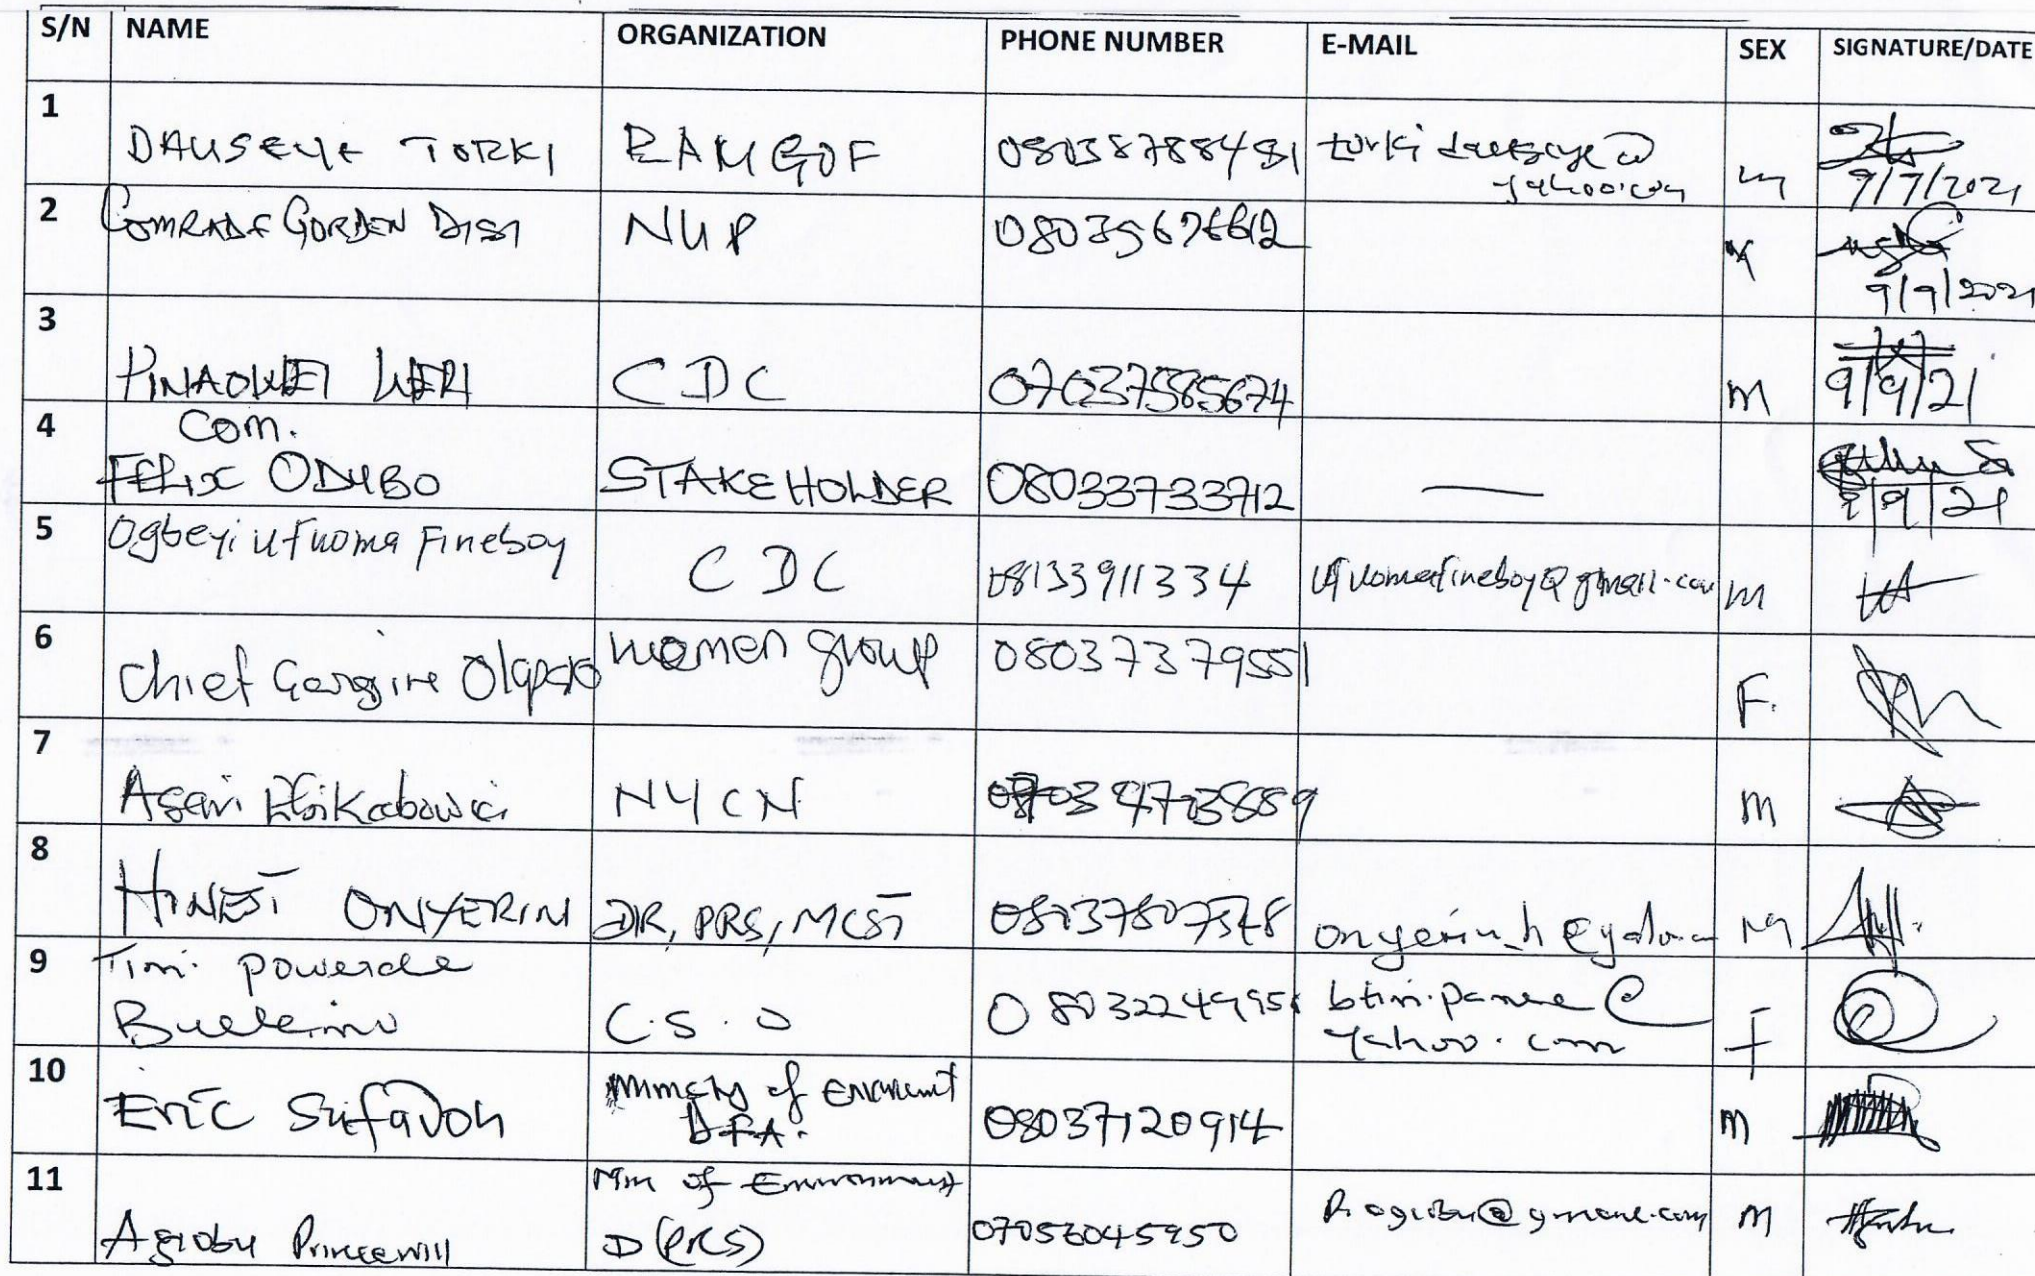 S/N NAME ORGANIZATION PHONE NUMBER E-MAIL SEX SIGNATURE/DATE
1 DAUSEYE TORKI RAMGOF 08038788481 torki dauseye@
yahoo.com m 9/7/2021
2 COMRADE GORDEN DISI NUP
9/9/2021
3 PINAOWEI WERI CDC 07037585674 M 9/9/21
4 COM.
FELIX ODUBO STAKEHOLDER 08033733712 — 9/9/21
5 Ogbeyi ufuoma Fineboy CDC 08133911334 ufuomafineboy@gmail.com m
6 Chief Georgine women group 08037379551 F.
7 Asari NYCN M
8 HINEST ONYERIN DIR, PRS, MCST 08037807548 M
9 Timi powerde
C.S.O yahoo.com F
10 Eric Ministry of Environment
DFA. 08037120914 m
11 Agiobu Princewill Min of Environment
D(PRS) 07056045950 m